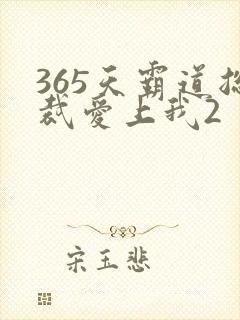 365天霸道总
裁爱上我2
宋玉悲